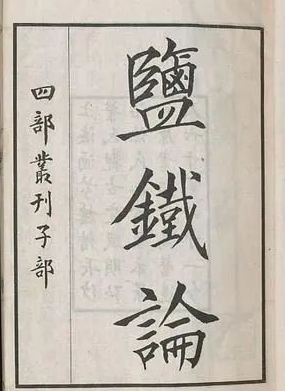 鹽鐵論
四部叢刊子部